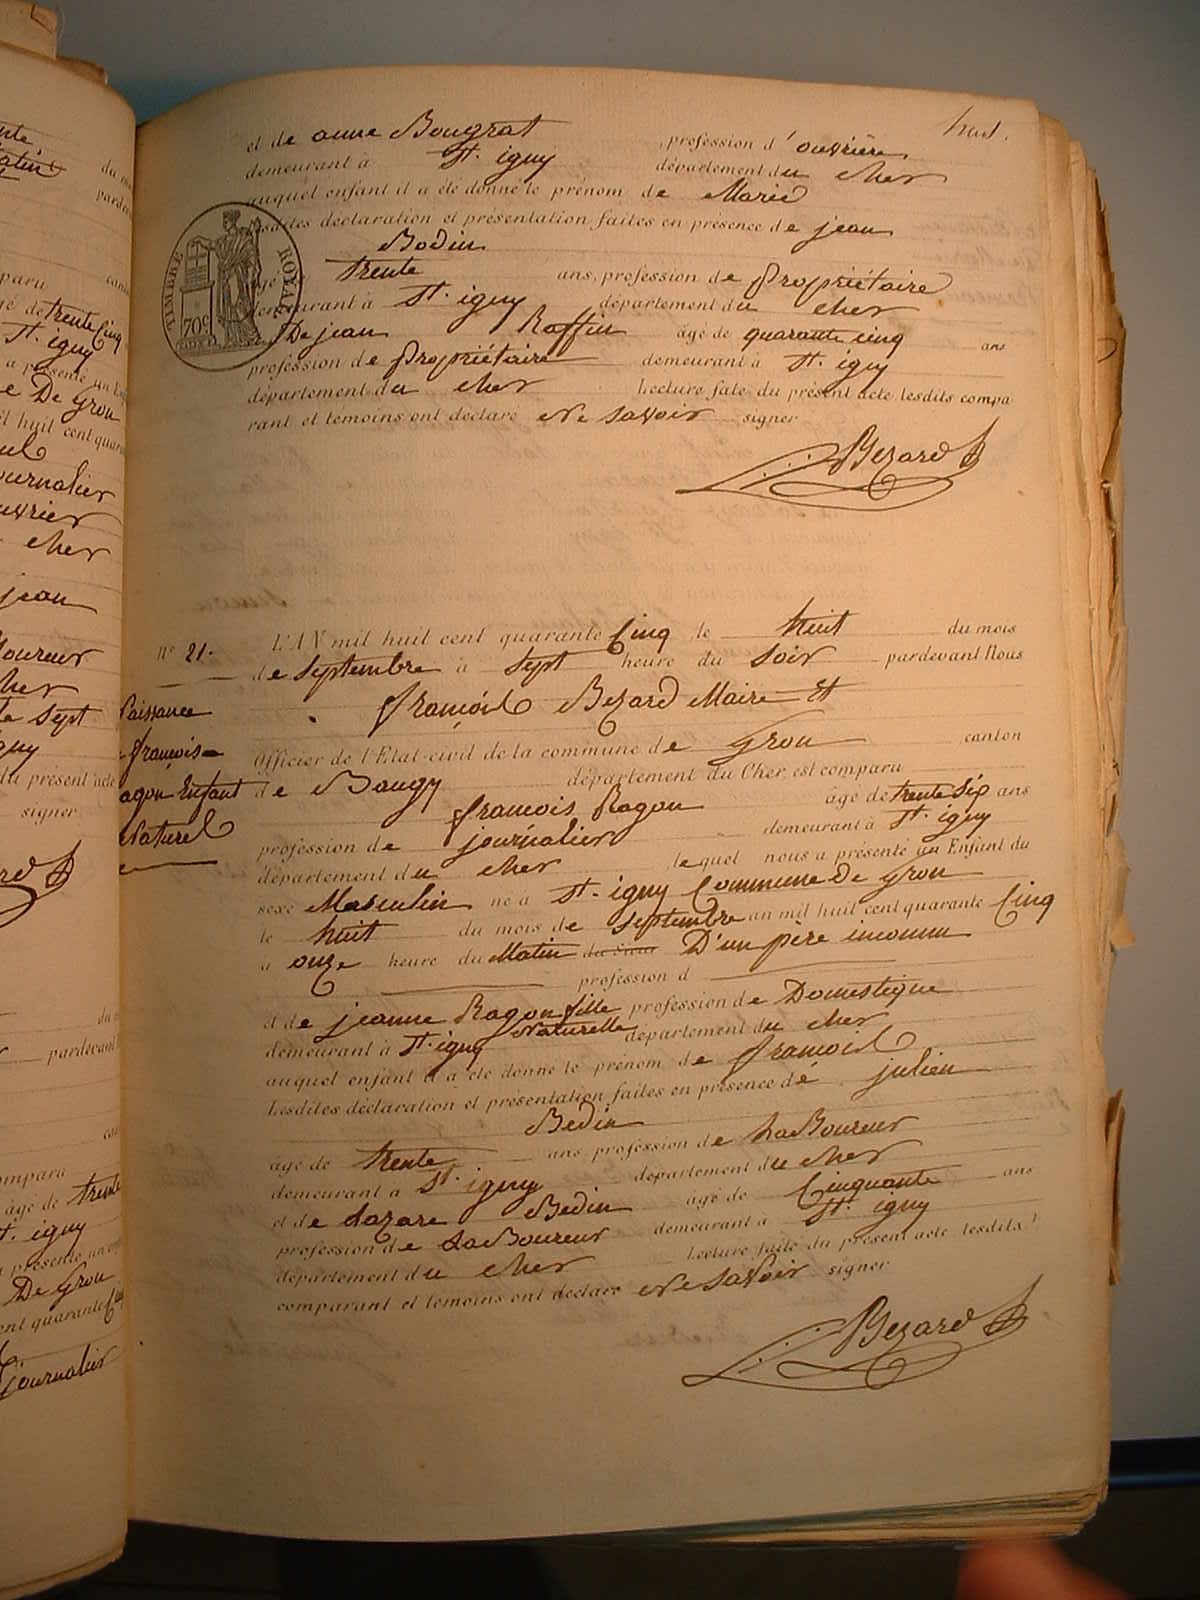 huit.
et de anne Bougrat profession d'ouvrière
demeurant à St. igny département du cher
auquel enfant il a été donné le prénom de Marie
lesdites déclaration et présentation faites en présence de jean
Bodin
âgé trente ans, profession de propriétaire
demeurant à St. igny département du cher
De jean Raffin âgé de quarante cinq ans
profession de propriétaire demeurant à St. igny
département du cher Lecture fate du présent acte lesdits compa
rant et témoins ont déclaré Ne savoir signer
Bezard
TIMBRE ROYAL
70c
n° 21.
Naissance
françois
Ragon Enfant
Naturel
L'AN mil huit cent quarante Cinq le huit du mois
de septembre à sept heure du soir pardevant Nous
françois Bezard Maire Et
Officier de l'Etat-civil de la commune de Gron canton
de Baugy département du Cher, est comparu
françois Ragon âgé de trente six ans
profession de journalier demeurant à St. igny
département du cher lequel nous a présenté un Enfant du
sexe Masculin né à St. igny Commune De Gron
le huit du mois de septembre an mil huit cent quarante Cinq
à onze heure du Matin du sieur D'un père inconnu
profession d
et de jeanne Ragon fille profession de Domestique
Naturelle
demeurant à St. igny département du cher
auquel enfant il a été donné le prénom de françois
Lesdites déclaration et présentation faites en présence de julien
Bedin
âgé de trente ans profession de LaBoureur
demeurant à St. igny département du cher
et de Lazare Bedin âgé de Cinquante ans
profession de LaBoureur demeurant à St. igny
département du cher Lecture faite du présent acte lesdits
comparant et témoins ont déclaré Ne savoir signer
Bezard